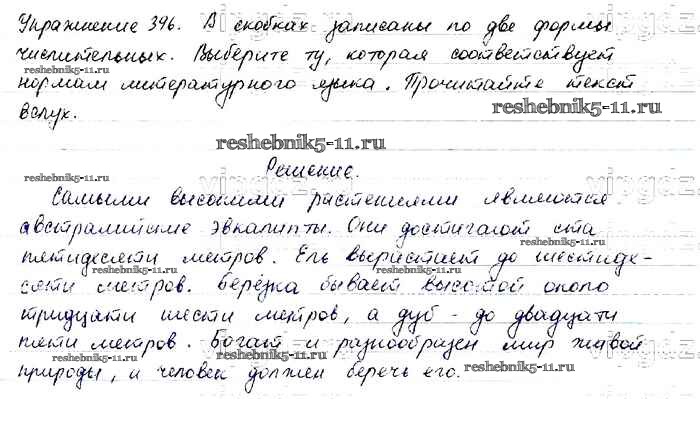 Упражнение 396. В скобках записаны по две формы
числительных. Выберите ту, которая соответствует
нормам литературного языка. Прочитайте текст
reshebnik5-11.ru
reshebnik5-11.ru
вслух.
reshebnik5-11.ru
Решение.
reshebnik5-11.ru
Самыми высокими растениями являются
австралийские эвкалипты. Они достигают ста
reshebnik5-11.ru
пятидесяти метров. Ель вырастает до шестиде-
reshebnik5-11.ru
сяти метров. Берёзка бывает высотой около
тридцати шести метров, а дуб - до двадцати
пяти метров. Богат и разнообразен мир живой
reshebnik5-11.ru
природы, и человек должен беречь его.
reshebnik5-11.ru